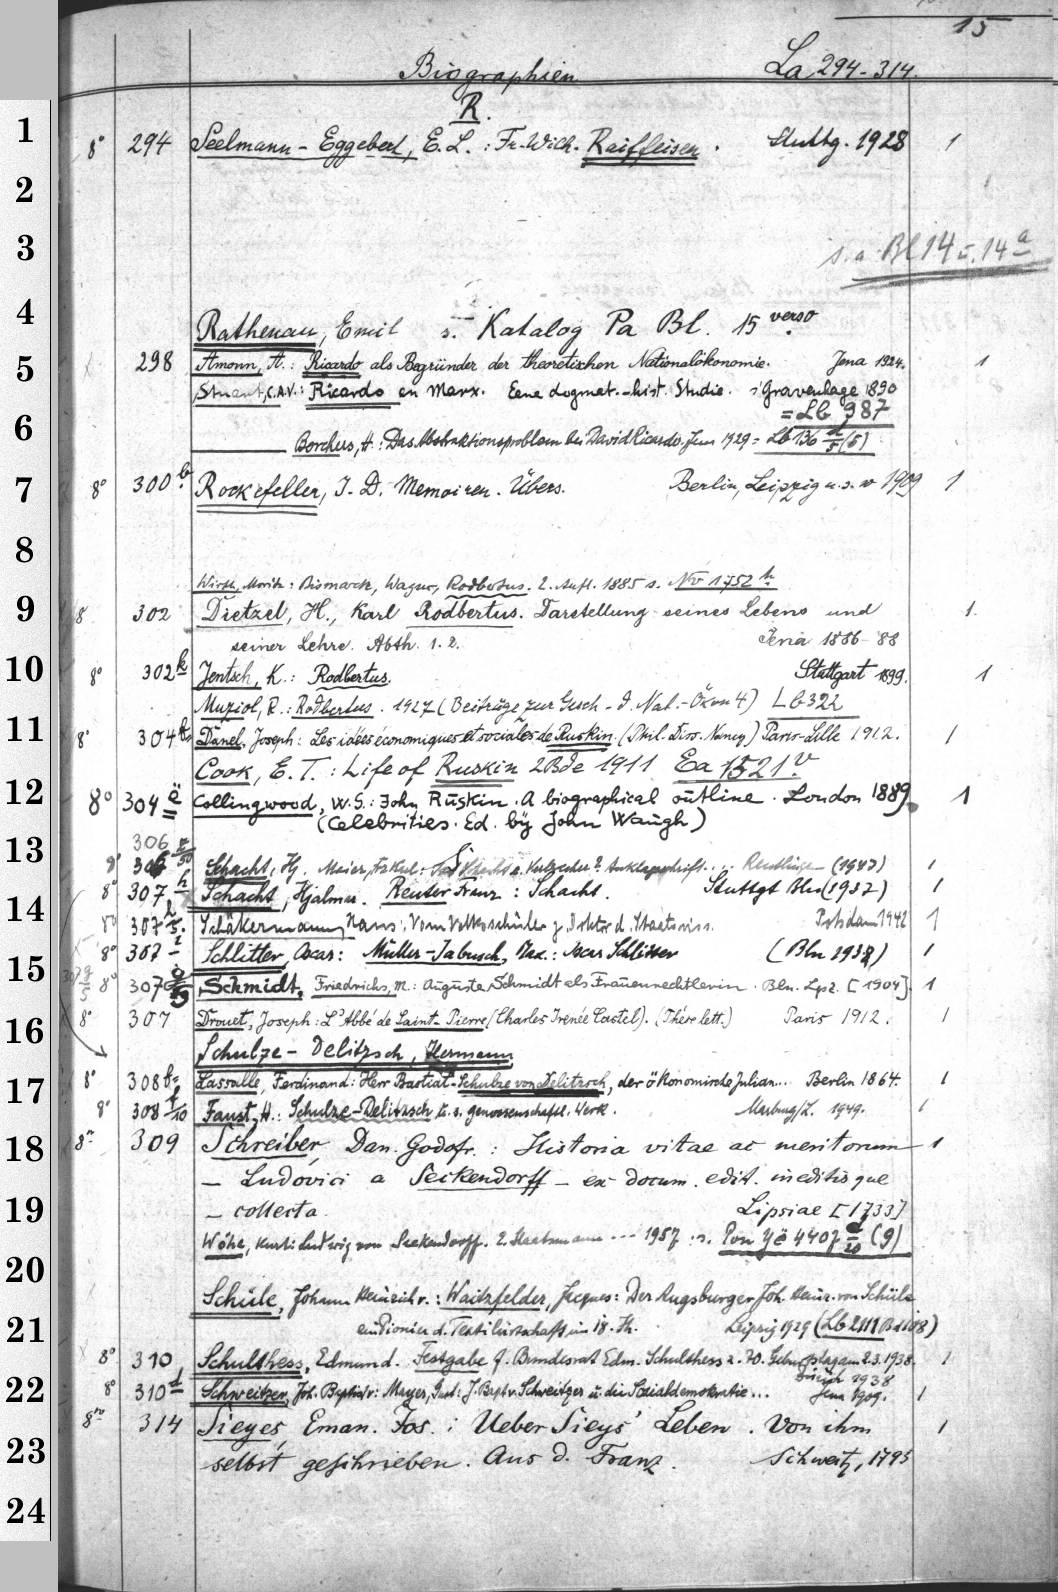 15
Biographien La 294-314.
R.
1 8° 294 Seelmann-Eggebert, E. L. : Fr. Wilh. Raiffeisen. Stuttg. 1928 1
2
3 s. a. Bl 14 u. 14a
4 Rathenau, Emil s. Katalog Pa Bl. 15 verso
5 298 Amonn, A.: Ricardo als Begründer der theoretischen Nationalökonomie. Jena 1924. 1
Stuart, C.A.V.: Ricardo en Marx. Eene dogmat.-hist. Studie. s'Gravenhage 1890
6 = Lb 987
Borchers, H.: Das Abstraktionsproblem bei David Ricardo. Jena 1929 = Lb 136 d/5 (5)
7 8° 300 b Rockefeller, J. D. Memoiren. Übers. Berlin, Leipzig u.s.w 1909 1
8
Wirth, Moritz: Bismarck, Wagner, Rodbertus. 2. Aufl. 1885 s. Nv 1752
9 8 302 Dietzel, H., Karl Rodbertus. Darstellung seines Lebens und 1.
seiner Lehre. Abth. 1. 2. Jena 1886-88
10 8° 302 k Jentsch, K.: Rodbertus. Stuttgart 1899. 1
Muziol, R.: Rodbertus. 1927 (Beiträge zur Gesch. d. Nat.-Ökon 4) Lb 322
11 8° 304 b Danel, Joseph: Les idées économiques et sociales de Ruskin. (Phil. Diss. Nancy) Paris-Lille 1912. 1
Cook, E. T. : Life of Ruskin 2 Bde 1911 Ea 1521 v
12 8° 304 ë Collingwood, W. S.: John Ruskin. A biographical outline. London 1889. 1
(Celebrities. Ed. by John Waugh)
13 306
8° 306 /50 Schacht, Hj. Anklageschrift... Reutlingen (1947) 1
14 8° 307 h Schacht, Hjalmar. Reuter Franz : Schacht. Stuttgt Bln (1937) 1
8° 307 /5. Schäkermann, Hans: Vom Volksschüler z. Doktor d. Staatswiss. Potsdam 1942 1
8° 307 i Schlitter, Oscar: Müller-Jabusch, Max.: Oscar Schlitter (Bln 1938) 1
15 8° 307 Schmidt, Friedrichs, M.: Auguste Schmidt als Frauenrechtlerin. Bln. Lpz. [1904]. 1
16 8° 307 Drouet, Joseph: L'Abbé de Saint-Pierre (Charles Irenée Castel). (Thèse lett.) Paris 1912. 1
Schulze-Delitzsch, Hermann
17 8° 308 b Lassalle, Ferdinand: Herr Bastiat-Schulze von Delitzsch, der ökonomische Julian... Berlin 1864. 1
8° 308 /10 Faust, H.: Schulze-Delitzsch u. s. genossenschaftl. Werk. Marburg/L. 1949. 1
18 8° 309 Schreiber, Dan. Godofr. : Historia vitae ac meritorum 1
— Ludovici a Seckendorff — ex docum. edit. ineditisque
19 — collecta. Lipsiae [1733]
Wöhe, Kurt: Ludwig von Seckendorff. 2. Staatsmann ... 1957 : s. Pon Yë 4407 /20 (9)
20
Schüle, Johann Heinrich v. : Waitzfelder, Jacques: Der Augsburger Joh. Heinr. von Schüle
21 ein Pionier d. Textilwirtschaft im 18. Jh. Leipzig 1929 (Lb 2111 Bd 118)
8° 310 Schulthess, Edmund. Festgabe f. Bundesrat Edm. Schulthess z. 70. Geburtstag am 2.3.1938. 1
Zürich 1938
22 8° 310 d Schweitzer, Joh. Baptist v.: Mayer, Gust: J. Bapt v. Schweitzer u. die Sozialdemokratie... Jena 1909. 1
8° 314 Sieyes, Eman. Jos. : Ueber Sieys' Leben. Von ihm 1
23 selbst geschrieben. Aus d. Franz. Schweitz, 1795
24